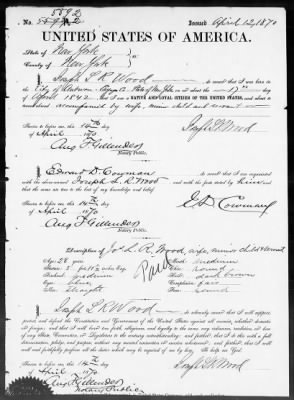 5592
No. 5592 Issued April 12, 1870
UNITED STATES OF AMERICA.
State of New York
County of New York
I, Joseph L R Wood do swear that I was born in the
City of Auburn State of New York on or about the 17th day
April 1842 that I am a NATIVE AND LOYAL CITIZEN OF THE UNITED STATES, and about to
accompanied by wife, minor child and servant
Sworn to before me this 14th day
of April 1870
Joseph L R Wood
Aug F Gillender
Notary Public.
I, Edward D. Cowman
acquainted with Joseph L. R. Wood and with the facts stated by him
that the same are true to the best of my knowledge and belief
Sworn to before me this 14th day
of April 1870
E D Cowman
Aug F Gillender
Notary Public.
Description of Jos L. R. Wood, wife, minor child & servant
Age: 28 years
Mouth: medium
Stature: 5 feet
Chin: round
Paid
Forehead: medium
Hair: dark brown
Eyes: blue
Complexion: fair
Nose: straight
Face: round
I, Joseph L R Wood do solemnly swear that I will support,
protect, and defend the Constitution and Government of the United States against all enemies, whether domestic
or foreign; and that I will bear true faith, allegiance, and loyalty to the same, any ordinance, resolution or law
of any State Convention or Legislature to the contrary notwithstanding; and further, that I do this with a full
determination, pledge, and purpose, without any mental reservation or evasion whatsoever; and further, that I
will well and faithfully perform all the duties which may be required of me by law. So help me God.
Sworn to before me this 14th day
April 1870
Joseph L R Wood
Aug F Gillender
Notary Public